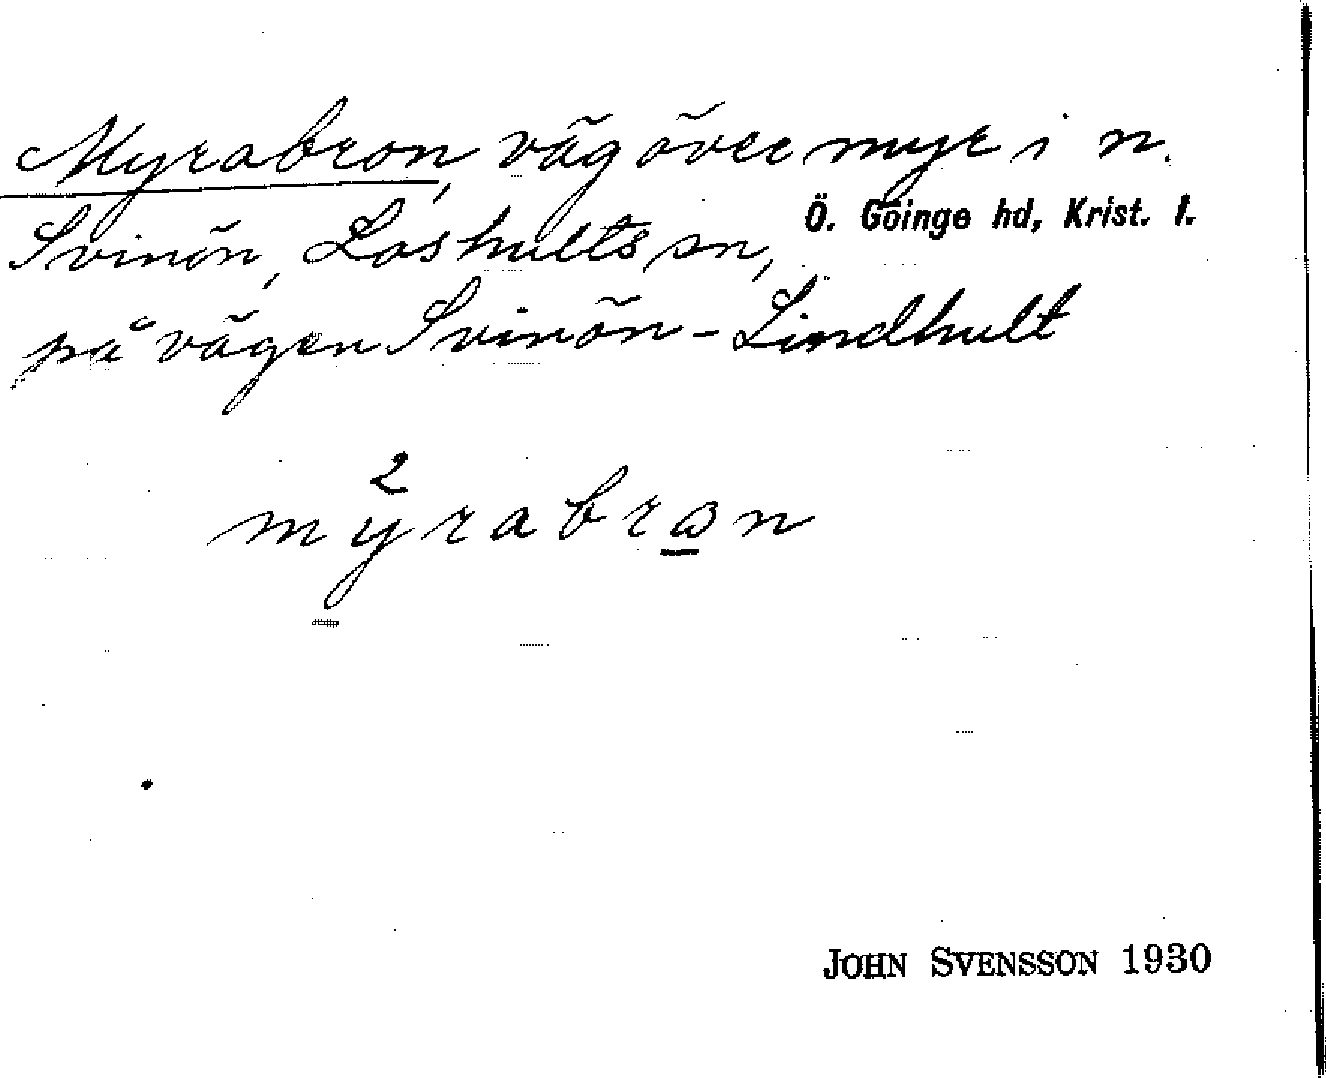 Myrabron, väg över myr i n.
Ö. Göinge hd, Krist. l.
Svinön, Loshults sn,
på vägen Svinön - Lindhult
2
myrabrɷn
JOHN SVENSSON 1930